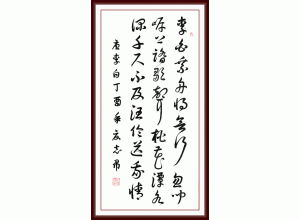 李白乘舟将欲行忽闻
岸上踏歌声桃花潭水
深千尺不及汪伦送我情
唐李白丁酉年